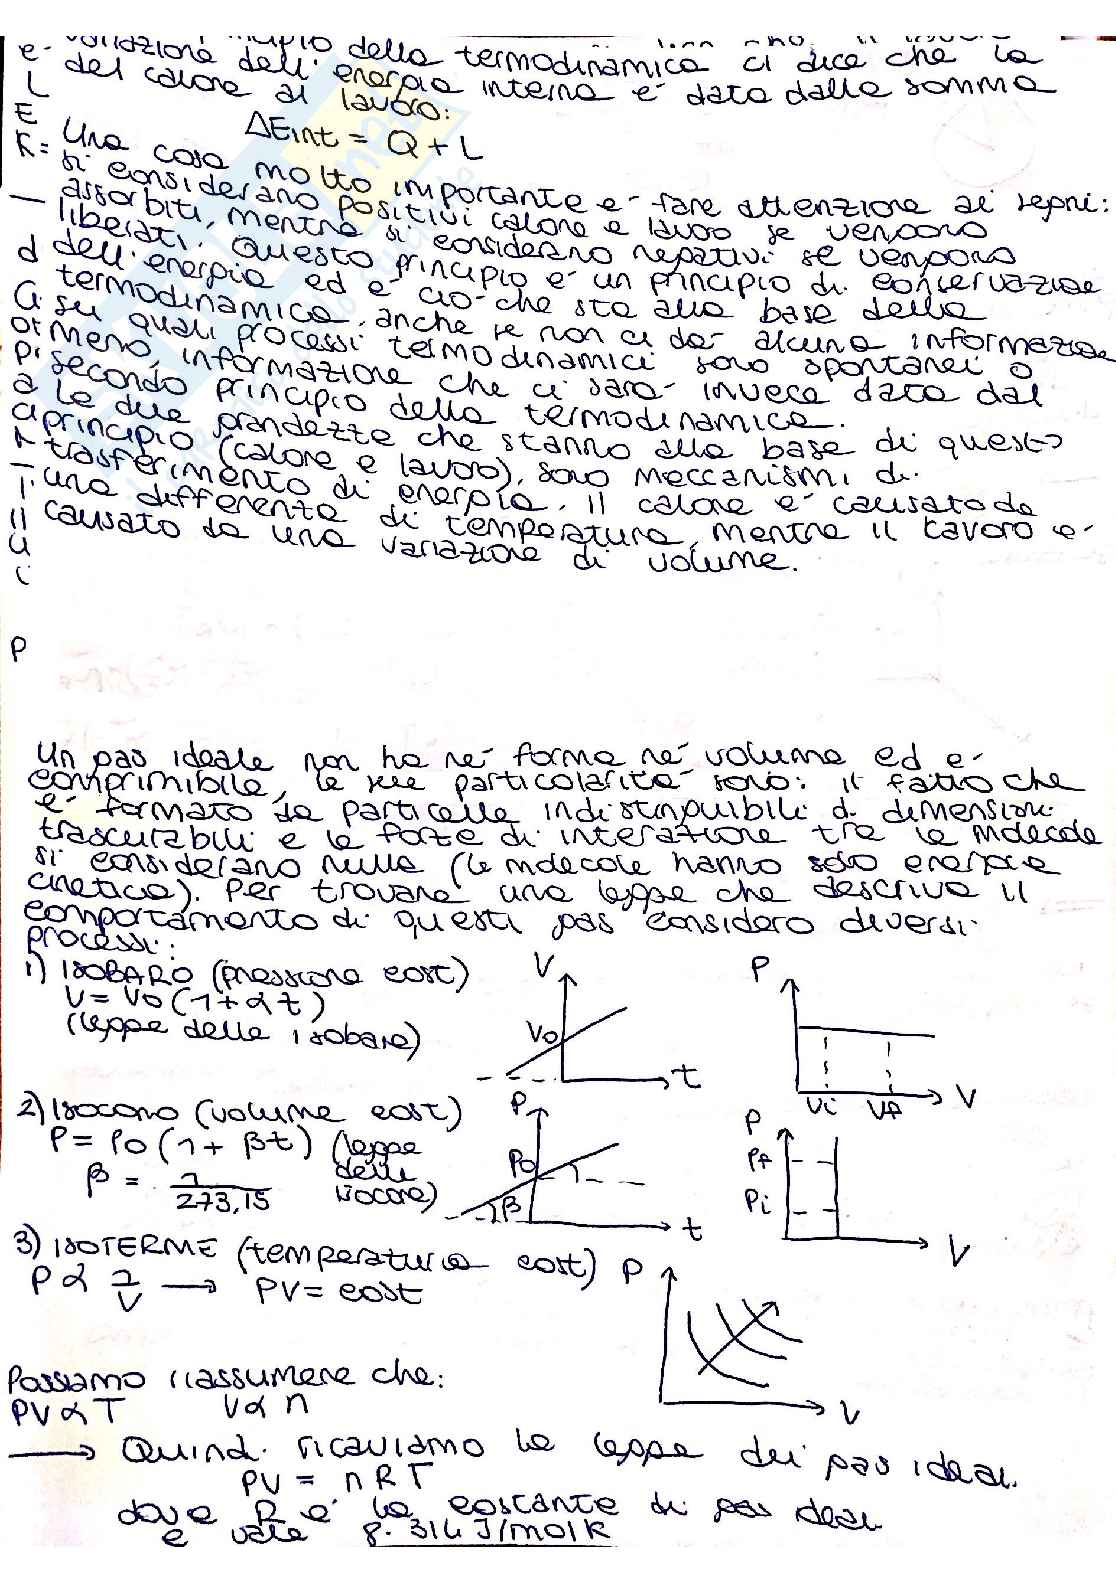 variazione
della termodinamica ci dice che la
dell'energia interna e' data dalla somma
del calore al lavoro:
ΔEint = Q + L
Una cosa molto importante e' fare attenzione ai segni:
si considerano positivi calore e lavoro se vengono
assorbiti, mentre si considerano negativi se vengono
liberati. Questo principio e' un principio di conservazione
dell'energia ed e' cio' che sta alla base della
termodinamica, anche se non ci da' alcuna informazione
su quali processi termodinamici sono spontanei o
meno, informazione che ci sara' invece data dal
secondo principio della termodinamica.
Le due grandezze che stanno alla base di questo
principio (calore e lavoro), sono meccanismi di
trasferimento di energia. Il calore e' causato da
una differenza di temperatura, mentre il lavoro e'
causato da una variazione di volume.
P
Un gas ideale non ha ne' forma ne' volume ed e'
comprimibile, le sue particolarita' sono: il fatto che
e' formato da particelle indistinguibili di dimensioni
trascurabili e le forze di interazione tra le molecole
si considerano nulle (le molecole hanno solo energia
cinetica). Per trovare una legge che descriva il
comportamento di questi gas considero diversi
processi:
1) ISOBARO (pressione cost)
V = V0 (1 + αt)
(legge delle isobare)
V
V0
t
P
Vi
Vf
V
2) ISOCORO (volume cost)
P = P0 (1 + βt) (legge delle isocore)
β = 1/273,15
P
P0
β
t
P
Pf
Pi
V
3) ISOTERME (temperatura cost)
P ∝ 1/V → PV = cost
P
V
Possiamo riassumere che:
PV ∝ T V ∝ n
→ Quindi ricaviamo la legge dei gas ideali
PV = nRT
dove R e' la costante di gas ideali
e vale 8.314 J/molK